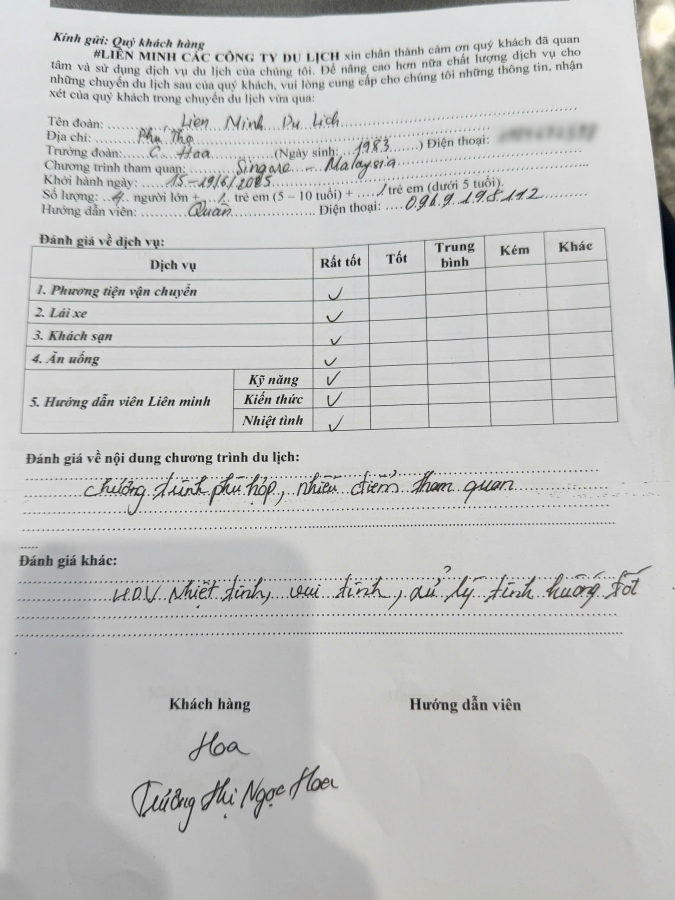 Kính gửi: Quý khách hàng
#LIÊN MINH CÁC CÔNG TY DU LỊCH xin chân thành cảm ơn quý khách đã quan
tâm và sử dụng dịch vụ du lịch của chúng tôi. Để nâng cao hơn nữa chất lượng dịch vụ cho
những chuyến du lịch sau của quý khách, vui lòng cung cấp cho chúng tôi những thông tin, nhận
xét của quý khách trong chuyến du lịch vừa qua:
Tên đoàn: Liên Minh Du Lịch
Địa chỉ: Phú Thọ
Trưởng đoàn: C. Hoa (Ngày sinh: 1983) Điện thoại:
Chương trình tham quan: Singapo - Malaysia
Khởi hành ngày: 15-19/6/2025
Số lượng: 4 người lớn + 1 trẻ em (5 – 10 tuổi) + / trẻ em (dưới 5 tuổi).
Hướng dẫn viên: Quân Điện thoại: 0969.198.112
Đánh giá về dịch vụ:
Dịch vụ Rất tốt Tốt Trung bình Kém Khác
1. Phương tiện vận chuyển ✓
2. Lái xe ✓
3. Khách sạn ✓
4. Ăn uống ✓
5. Hướng dẫn viên Liên minh Kỹ năng ✓
Kiến thức ✓
Nhiệt tình ✓
Đánh giá về nội dung chương trình du lịch:
Chương trình phù hợp, nhiều điểm tham quan
Đánh giá khác:
HDV Nhiệt tình, vui tính, xử lý tình huống tốt
Khách hàng Hướng dẫn viên
Hoa
Trương Thị Ngọc Hoa